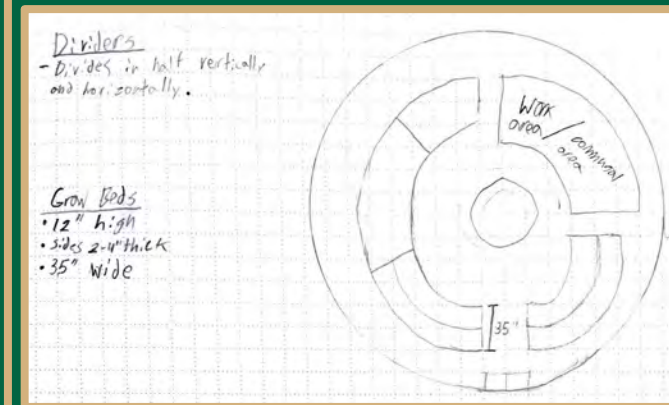 Dividers
- Divides in half vertically
and horizontally.
Grow Beds
• 12" high
• Sides 2-4" thick
• 35" wide
Work
area /
communal
area
35"